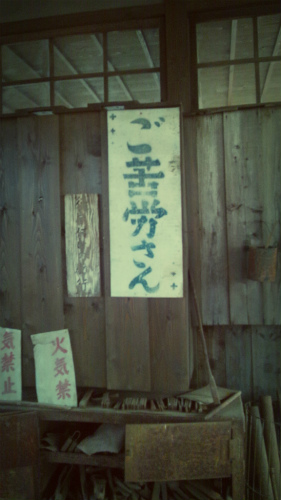 ご苦労さん
火気禁
気禁止